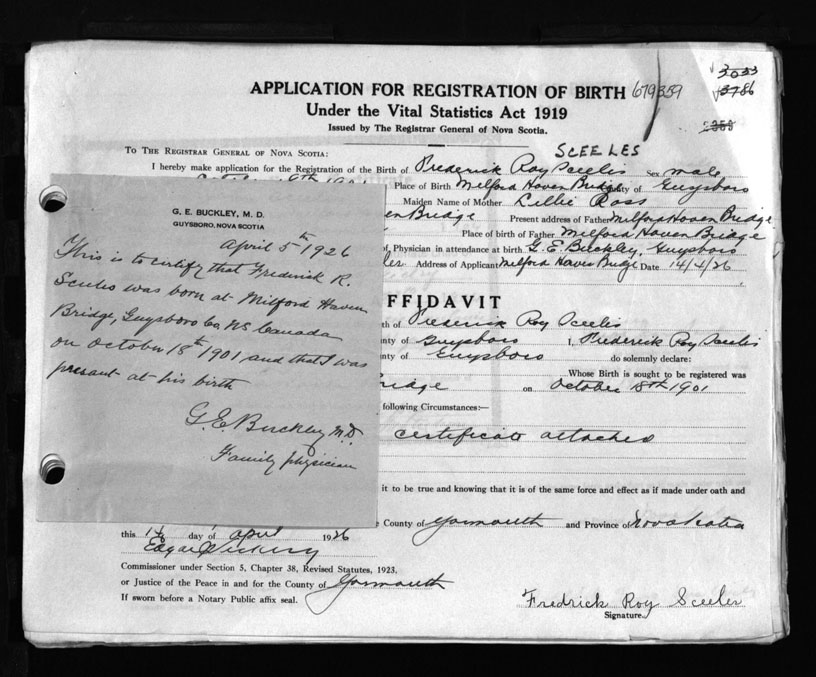 APPLICATION FOR REGISTRATION OF BIRTH 679359
2033
3786
2353
Under the Vital Statistics Act 1919
Issued by The Registrar General of Nova Scotia.
SCEELES
To The Registrar General of Nova Scotia:
I hereby make application for the Registration of the Birth of Frederick Roy Sceelis Sex male
Place of Birth Milford Haven Bridge County of Guysboro
Maiden Name of Mother Lillie Ross
en Bridge Present address of Father Milford Haven Bridge
Place of birth of Father Milford Haven Bridge
Physician in attendance at birth G. E. Buckley, Guysboro
Address of Applicant Milford Haven Bridge Date 14/4/26
G. E. BUCKLEY, M. D.
GUYSBORO, NOVA SCOTIA
April 5th 1926
This is to certify that Frederick R.
Sceeles was born at Milford Haven
Bridge, Guysboro Co, NS Canada
on October 18th 1901 and that I was
present at his birth
G. E. Buckley M.D.
Family physician
FFIDAVIT
th of Frederick Roy Sceelis
nty of Guysboro I, Frederick Roy Sceelis
nty of Guysboro do solemnly declare:
Whose Birth is sought to be registered was
ridge on October 18th 1901
following Circumstances:—
certificate attached
it to be true and knowing that it is of the same force and effect as if made under oath and
County of Yarmouth and Province of Nova Scotia
this day of April 1926
Commissioner under Section 5, Chapter 38, Revised Statutes, 1923,
or Justice of the Peace in and for the County of Yarmouth
If sworn before a Notary Public affix seal.
Fredrick Roy Sceeles
Signature.